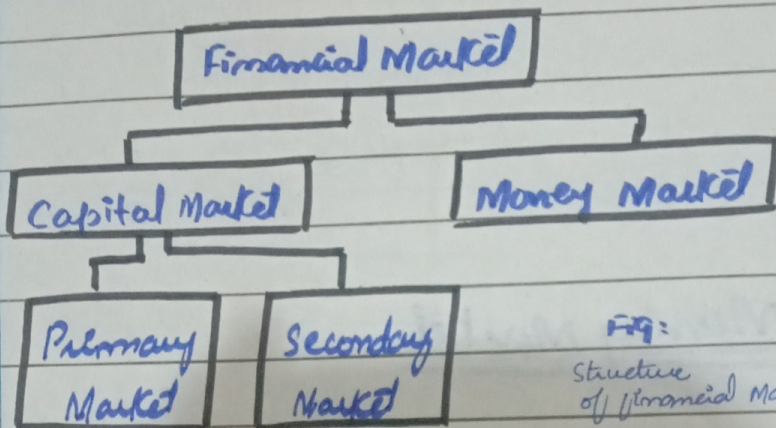 Financial Market
Capital Market
Money Market
Primary
Market
Secondary
Market
Fig:
Structure
of financial